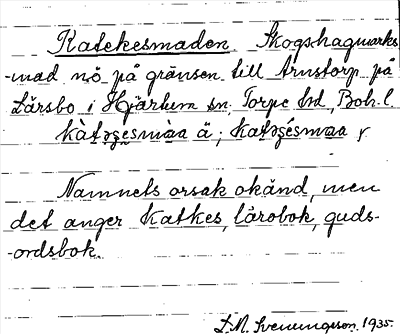 Katekesmaden. Skogshagmarks
-mad nö på gränsen till Arnstorp på
Lärsbo i Hjärtum sn. Torpe hd, Boh. l.
Namnets orsak okänd, men
det anger Katkes, lärobok, guds-
-ordsbok.
D.N. Svenungsson. 1935.